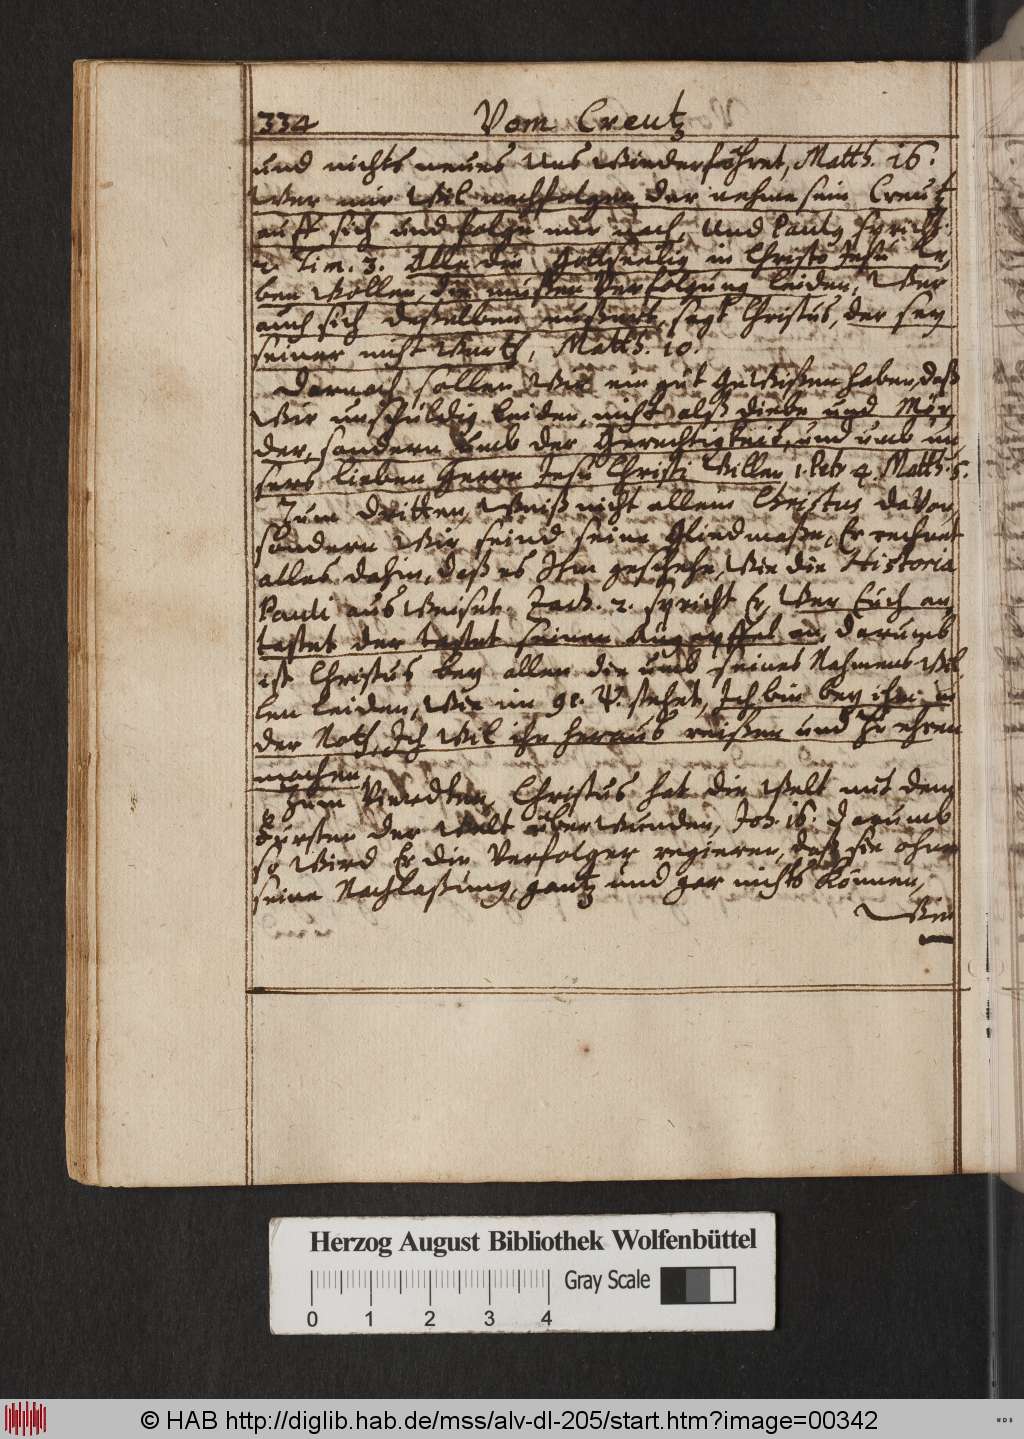 334 Vom Creutz
und nichts neues Uns Wiederföhret, Matth. 16.
Wer mir Wil nachfolgen, der nehme sein Creutz
auff sich und folge mir nach, Und Paulus spricht
2. Tim. 3. Alle die Gottseelig in Christo Jesu le,
ben Wollen, die mußen Verfolgung leiden, Wer
auch sich deßelben eußerte, sagt Christus, der sey
seiner nicht Werth, Matth. 10.
Darnach sollen Wir ein gut GeWißen haben, daß
Wir unschuldig leiden, nicht alß diebe und Mör,
der, sondern Umb der Gerechtigkeit, und umb un
sers lieben Herrn Jesu Christi Willen 1. Petr. 4. Matth. 5.
Zum dritten, Weiß nicht allein Christus daVon,
sondern Wir seind seine Gliedmaße, Er rechnet
alles dahin, daß es Ihm geschehe, Wie die Historia
Pauli ausWeiset. Zach. 2. spricht Er, Wer Euch an
tastet der tastet seinen Augapffel an, darumb
ist Christus bey allen die umb seines Nahmens Wil
len leiden, Wie im 91. Ps. stehet, Ich bin bey ihm in
der Noth, Ich Wil ihn heraus reißen und zu ehren
machen.
Zum Vierdten, Christus hat die Welt mit dem
Fürsten der Welt überWunden, Joh. 16. Darumb
so Wird Er die Verfolger regieren, daß sie ohne
seine Nachlaßung, gantz und gar nichts können,
Wie
Herzog August Bibliothek Wolfenbüttel
Gray Scale
0 1 2 3 4
© HAB http://diglib.hab.de/mss/alv-dl-205/start.htm?image=00342